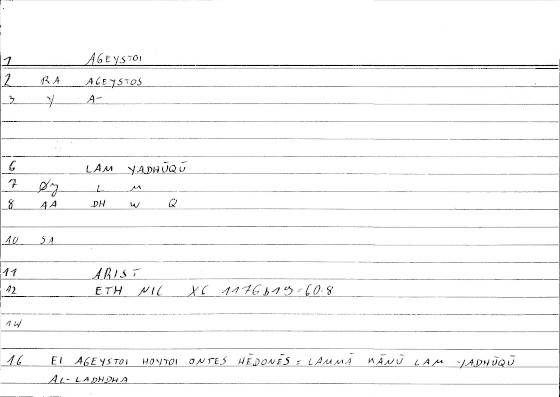 1 AGEYSTOI
2 RA AGEYSTOS
3 Y A-
6 LAM YADHŪQŪ
7 Øy L M
8 AA DH W Q
10 51
11 ARIST
12 ETH NIC XC 1176b19=60.8
14
16 EI AGEYSTOI HOYTOI ONTES HĒDONĒS = LAMMĀ KĀNŪ LAM YADHŪQŪ
AL-LADHDHA